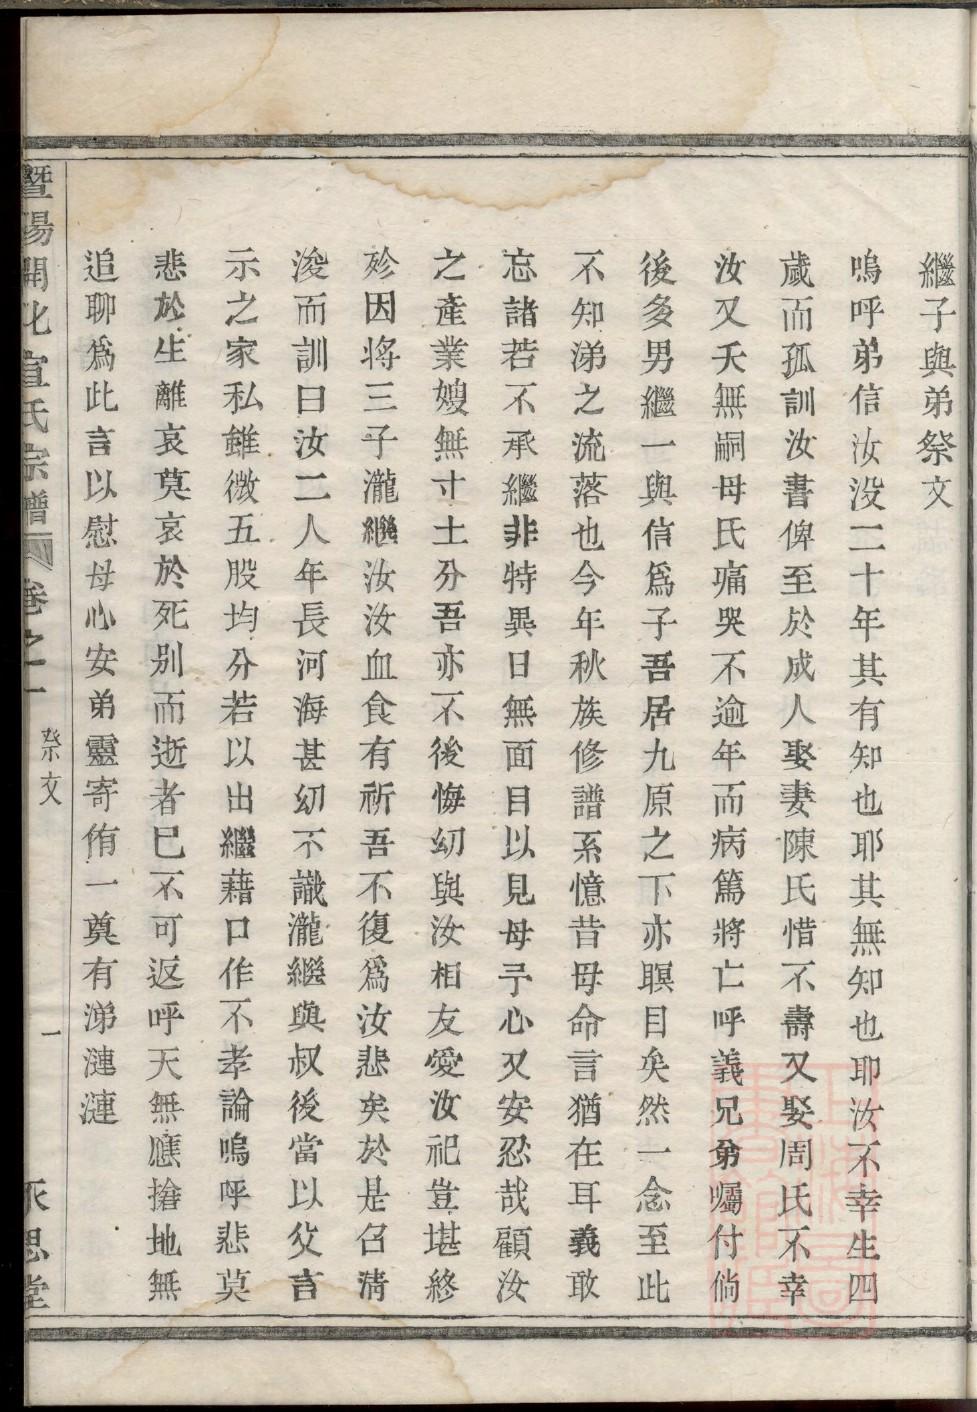 繼子與弟祭文
嗚呼弟信汝没二十年其有知也耶其無知也耶汝不幸生四
歲而孤訓汝書俾至於成人娶妻陳氏惜不壽又娶周氏不幸
汝又夭無嗣母氏痛哭不逾年而病篤將亡呼義兄弟囑付倘
後多男繼一與信爲子吾居九原之下亦瞑目矣然一念至此
不知涕之流落也今年秋族修譜系憶昔母命言猶在耳義敢
忘諸若不承繼非特異日無面目以見母于心又安忍哉顧汝
之產業嫂無寸土分吾亦不後悔幼與汝相友愛汝祀豈堪終
殄因将三子瀧繼汝汝血食有祈吾不復爲汝悲矣於是召淸
浚而訓曰汝二人年長河海甚幼不識瀧繼與叔後當以父言
示之家私雖微五股均分若以出繼藉口作不孝論嗚呼悲莫
悲於生離哀莫哀於死别而逝者巳不可返呼天無應搶地無
追聊爲此言以慰母心安弟靈寄侑一奠有涕漣漣
暨陽開化宣氏宗譜 卷之一 祭文 一 永思堂